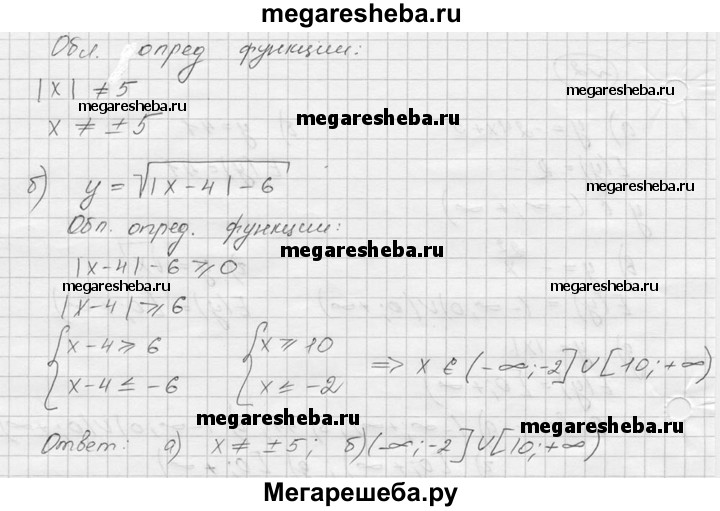 megaresheba.ru
Обл. опред функции:
|x| ≠ 5
megaresheba.ru
megaresheba.ru
megaresheba.ru
x ≠ ± 5
б) y = √|x - 4| - 6
megaresheba.ru
Обл. опред. функции:
megaresheba.ru
|x-4| - 6 ⩾ 0
megaresheba.ru
|x-4| ⩾ 6
{ x-4 ⩾ 6 { x ⩾ 10
x-4 ≤ -6 x ≤ -2 => x ∈ (-∞; -2] ∪ [10; +∞)
megaresheba.ru
megaresheba.ru
Ответ: а) x ≠ ± 5; б) (-∞; -2] ∪ [10; +∞)
Мегарешеба.ру